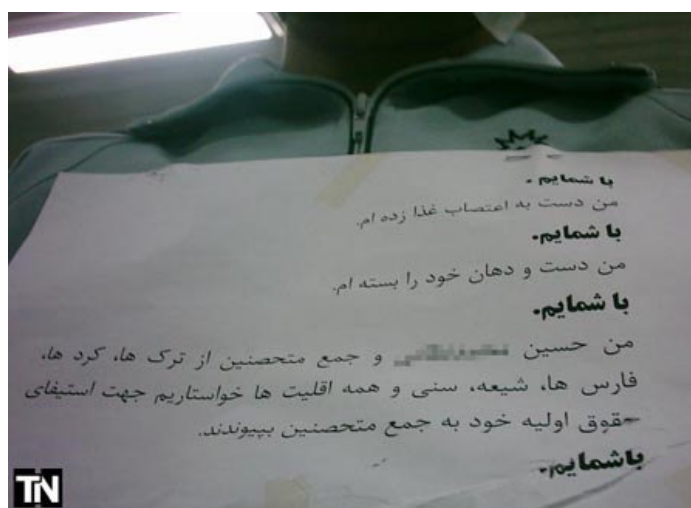 با شمایم.
من دست به اعتصاب غذا زده ام.
با شمایم.
من دست و دهان خود را بسته ام.
با شمایم.
من حسین و جمع متحصنین از ترک ها، کرد ها،
فارس ها، شیعه، سنی و همه اقلیت ها خواستاریم جهت استیفای
حقوق اولیه خود به جمع متحصنین بپیوندند.
باشمایم.
TN